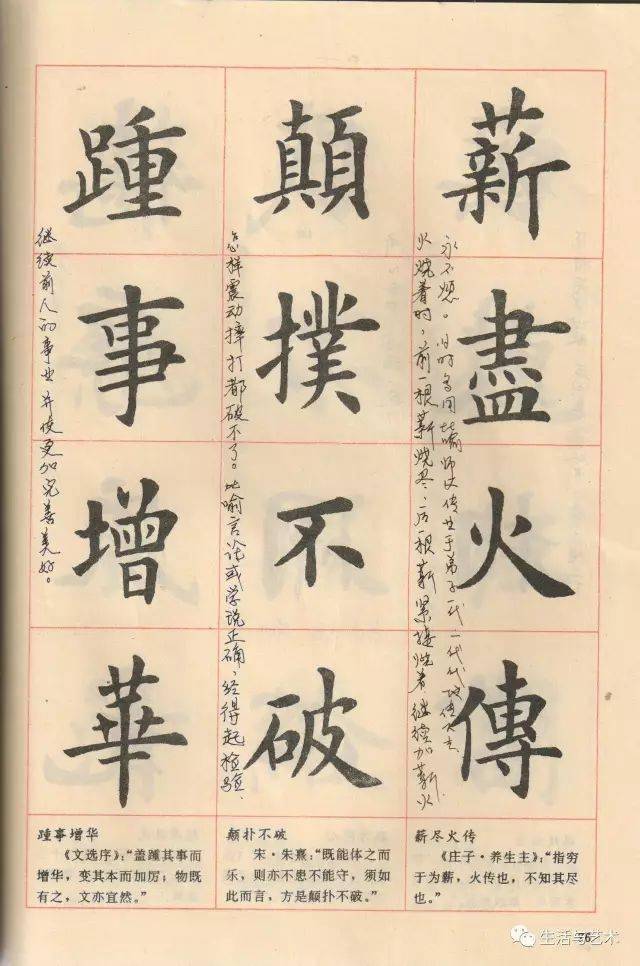 薪盡火傳
永不熄。旧时多用比喻师父传业于弟子一代一代地传下去
火烧着时，前一根薪烧尽，后一根薪紧接烧着，继续加薪火
顛撲不破
怎样震动摔打都破不了。比喻言论或学说正确，经得起检验.
踵事增華
继续前人的事业并使更加完善美好。
踵事增华
《文选序》：“盖踵其事而
增华，变其本而加厉；物既
有之，文亦宜然。”
颠扑不破
宋·朱熹：“既能体之而
乐，则亦不患不能守，须如
此而言，方是颠扑不破。”
薪尽火传
《庄子·养生主》：“指穷
于为薪，火传也，不知其尽
也。”
76
生活与艺术